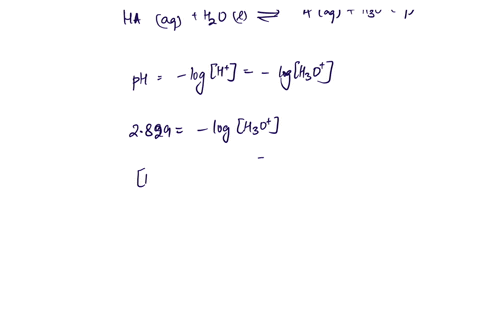 HA (aq) + H2O (l) ⇌ A (aq) + H3O
pH = -log[H+] = - log[H3O+]
2.899 = -log [H3O+]
[